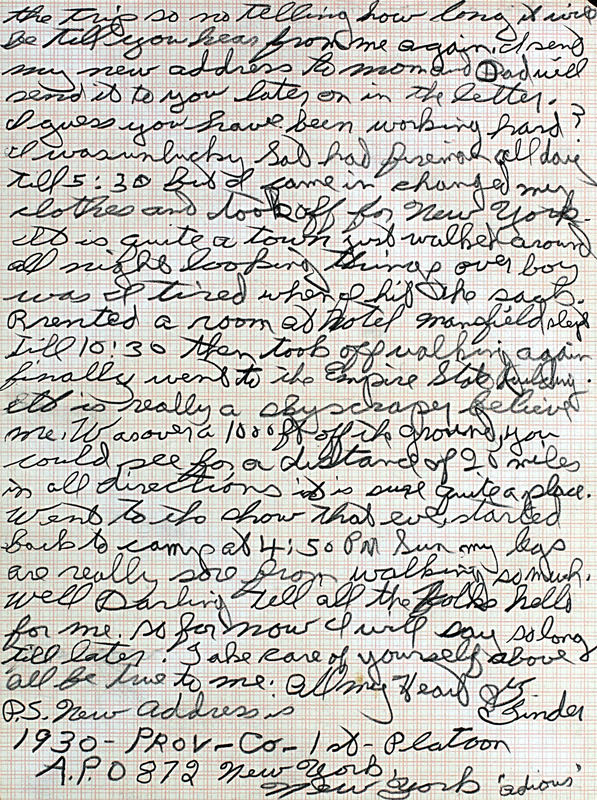 the trip so no telling how long it will
be till you hear from me again. I send
my new address to mom and Dad will
send it to you later on in the letter.
I guess you have been working hard?
I was unlucky Sat had all day
till 5:30 But I came in changed my
clothes and took off for New York.
It is quite a town just walked around
all night looking things over boy
was I tired when I hit the sack.
Rented a room at Hotel Mansfield slept
till 10:30 then took off walking again
finally went to the Empire State Building.
It is really a skyscraper believe
me. Was over a 1000 ft off the ground, you
could see for a distance of 20 miles
in all directions it is sure quite a place.
Went to the show that eve, started
back to camp at 4:50 PM Sun my legs
are really sore from walking so much.
Well Darling tell all the folks hello
for me. so for now I will say so long
till later. Take care of yourself above
all be true to me. All my Heart
P.S. New Address is Ginder
1930 - PROV - Co - 1st - Platoon
A.P.O 872 New York,
New York 'adious'